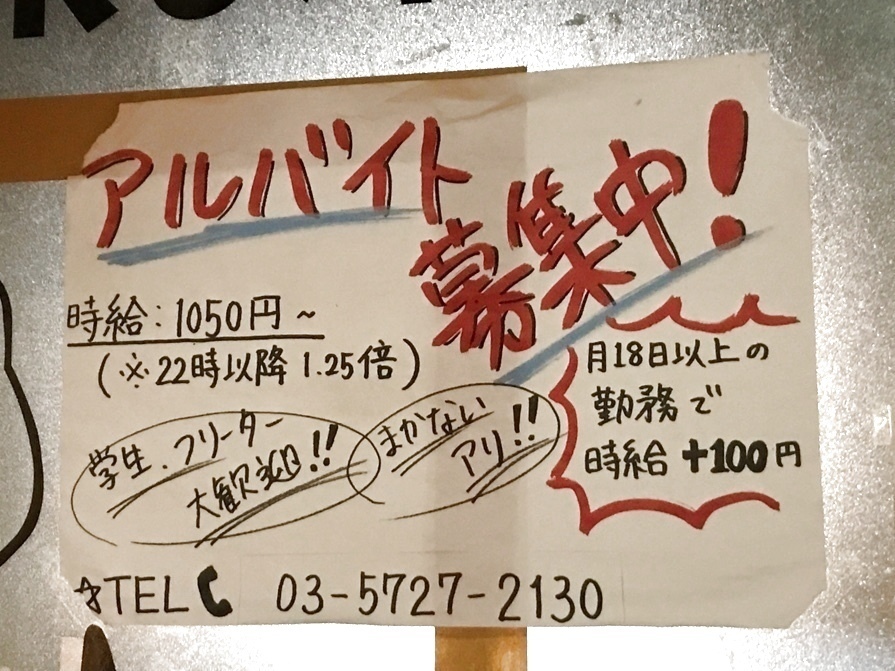 アルバイト
募集中!
時給:1050円~
(※22時以降 1.25倍)
学生.フリーター
大歓迎!!
まかない
アリ!!
月18日以上の
勤務で
時給+100円
☆TEL 03-5727-2130